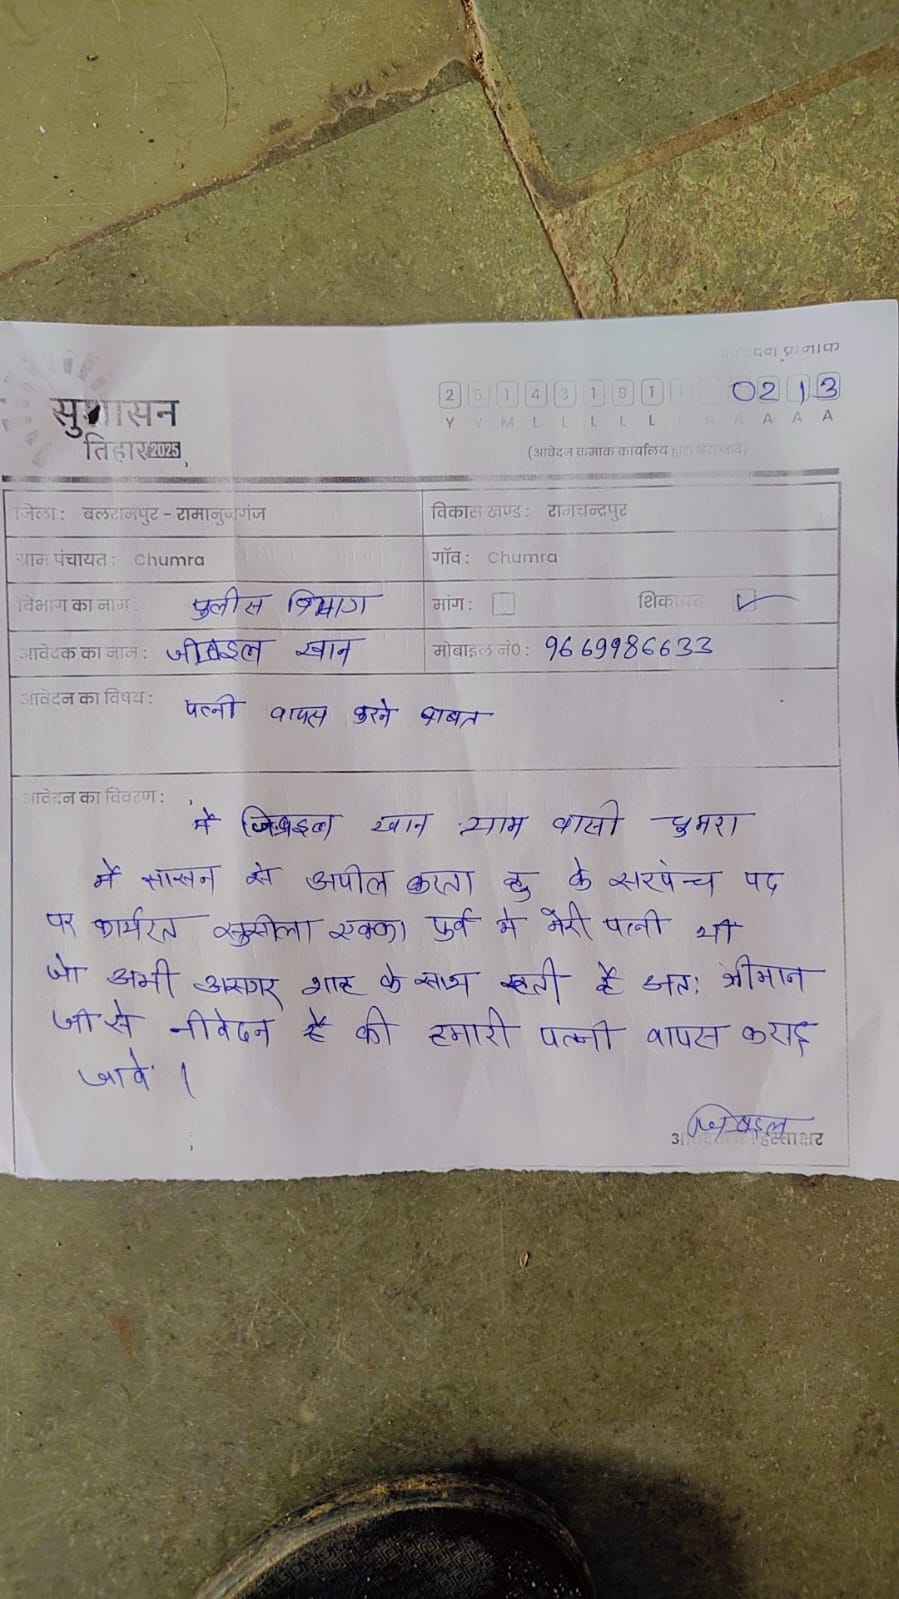 आवेदन क्रमांक
सुशासन
तिहार 2025
2 5 1 4 3 1 9 1 0 2 1 3
Y Y M L L L L L A A A A A A
(आवेदन क्रमांक कार्यालय द्वारा भरा जावे)
जिला : बलरामपुर - रामानुजगंज
विकास खण्ड : रामचन्द्रपुर
ग्राम पंचायत : Chumra
गाँव : Chumra
विभाग का नाम : पुलीस विभाग
मांग :
शिकायत :
आवेदक का नाम : जीबइल खान
मोबाइल नं0 : 9669986633
आवेदन का विषय : पत्नी वापस करने बाबत
आवेदन का विवरण :
में जिबइल खान ग्राम वासी चुमरा
में सासन से अपील करता हु के सरपंन्च पद
पर कार्यरत सुसीला एक्का पुर्व में मेरी पत्नी थी
जो अभी असगर शाह के साथ रहती है अत: श्रीमान
जी से नीवेदन है की हमारी पत्नी वापस कराइ
जावे ।
जिबइल
आवेदक का हस्ताक्षर